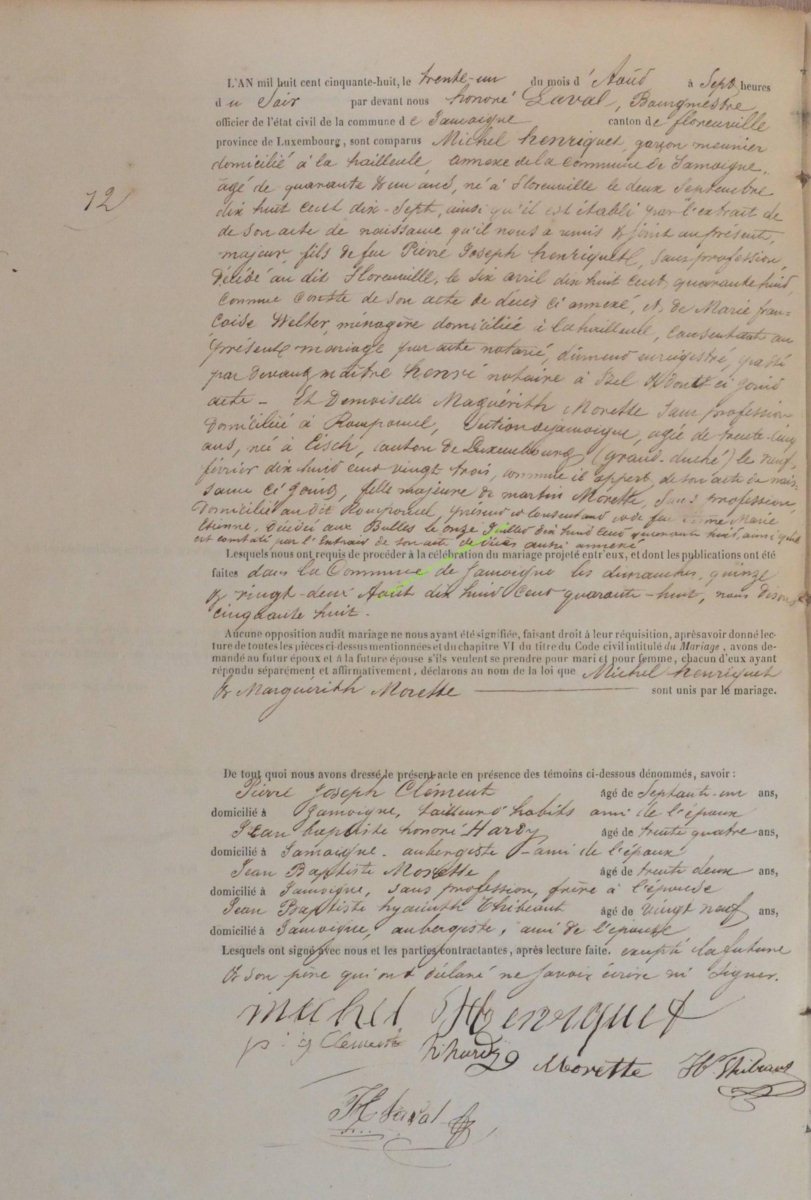 L'AN mil huit cent cinquante-huit, le trente-un du mois d'Août à Sept heures
du Soir par devant nous honoré Laval, Bourgmestre,
officier de l'état civil de la commune de Jamoigne canton de florenville
province de Luxembourg, sont comparus Michel henriquet, garçon meunier
domicilié à la hailleule, annexe de la Commune de Jamoigne.
12
âgé de quarante un ans, né à florenville le deux Septembre
dix huit cent dix-Sept, ainsi qu'il est établi par l'extrait de
de son acte de naissance qu'il nous a remis & joint au présent,
majeur, fils de feu Pierre Joseph henriquet, sans profession,
décédé au dit florenville, le six avril dix huit cent quarante huit,
comme conste de son acte de décès ci annexé, et de Marie fran-
çoise Welter, ménagère domiciliée à la hailleule, consentant au
présent mariage par acte notarié, dûment enregistré, passé
par devant maître henré notaire à ci joint
acte - Et Demoiselle Maguérith Morette sans profession
domiciliée à Romponcel, Section de jamoigne, agée de trente-cinq
ans, née à Eisch, canton de Luxembourg (grand-duché) le neuf
février dix huit cent vingt trois, comme il appert de son acte de nais-
sance ci joint, fille majeure de martin Morette, sans profession,
domicilié au dit Romponcel, présent et consentant et de feue Marie
décédée aux Bulles le onze Juillet dix huit cent quarante huit, ainsi qu'il
est constaté par l'Extrait de son acte de décès aussi annexé
Lesquels nous ont requis de procéder à la célébration du mariage projeté entr'eux, et dont les publications ont été
faites dans la Commune de Jamoigne les dimanches quinze
& vingt-deux Août dix huit cent quarante-huit, nous disons
cinquante huit.
Aucune opposition audit mariage ne nous ayant été signifiée, faisant droit à leur réquisition, après avoir donné lec-
ture de toutes les pièces ci-dessus mentionnées et du chapitre VI du titre du Code civil intitulé du Mariage, avons de-
mandé au futur époux et à la future épouse s'ils veulent se prendre pour mari et pour femme, chacun d'eux ayant
répondu séparément et affirmativement, déclarons au nom de la loi que Michel henriquet
& Marguérith Morette sont unis par le mariage.
De tout quoi nous avons dressé le présent acte en présence des témoins ci-dessous dénommés, savoir :
Pierre Joseph Clément âgé de Septante-un ans,
domicilié à Jamoigne, tailleur d'habits ami de l'épaux
Jean baptiste honoré Hardy âgé de trente quatre ans,
domicilié à Jamoigne. aubergiste - ami de l'épaux
Jean Baptiste Morette âgé de trente deux ans,
domicilié à Jamoigne, sans profession, frère à l'épouse
Jean Baptiste hyacinth Thibeaut âgé de vingt neuf ans,
domicilié à Jamoigne, aubergiste, ami de l'épouse
Lesquels ont signé avec nous et les parties contractantes, après lecture faite. excepté la future
& son père qui ont déclaré ne savoir écrire ni signer.
michel Henriquet
p. j Clement h hardy Morette Hte Thibeaut
H Laval